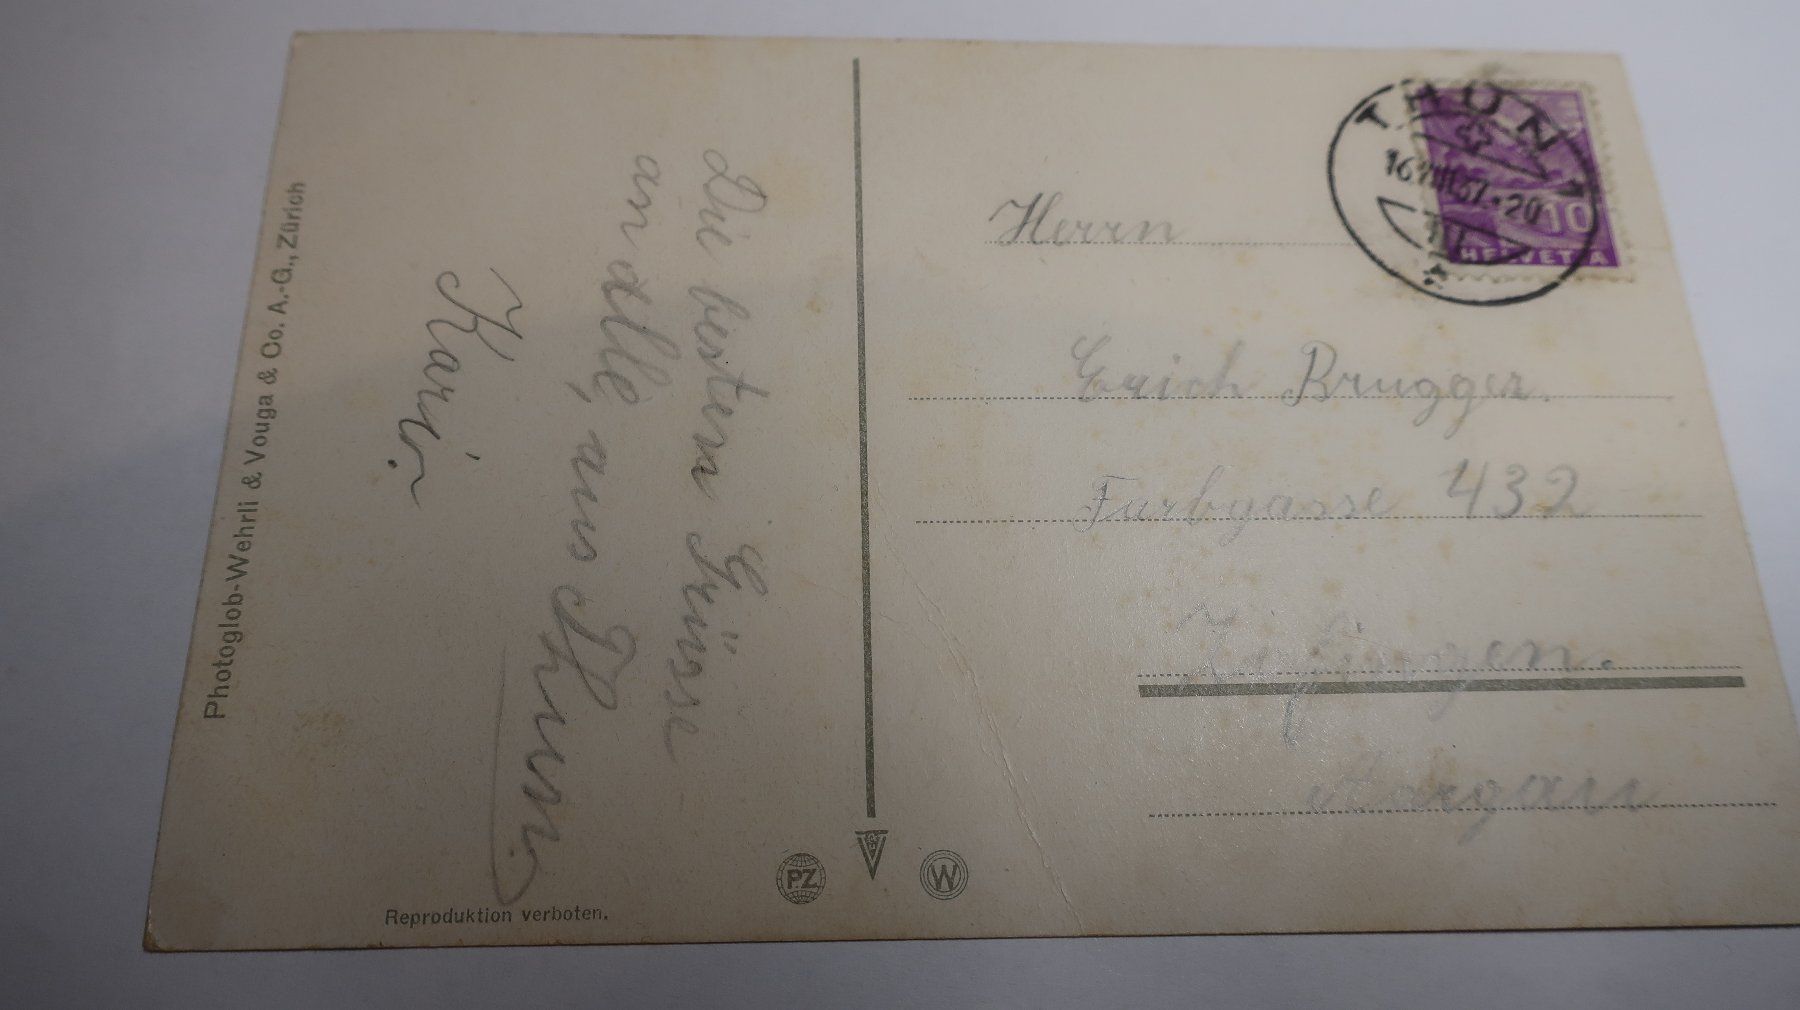 Die besten Grüsse
an alle, aus Thun
Karin.
Photoglob-Wehrli & Vouga & Co. A.-G., Zürich
Reproduktion verboten.
PZ
W
THUN 1
16.VIII.37.-20
10
HELVETIA
Herrn
Erich Brugger.
Farbgasse 432
Zofingen.
Aargau